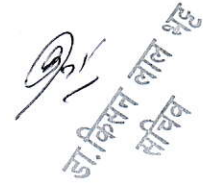 डा. किसन लाल भट्ट
सचिव